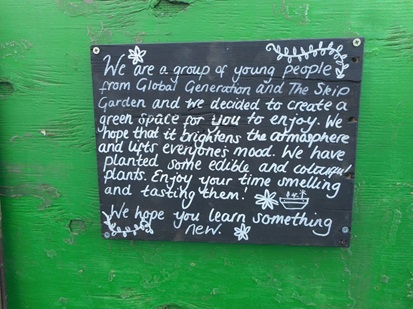 We are a group of young people
from Global Generation and The Skip
Garden and we decided to create a
green space for you to enjoy. We
hope that it brightens the atmosphere
and lifts everyones mood. We have
planted some edible and colourful
plants. Enjoy your time smelling
and tasting them!
We hope you learn something
new.